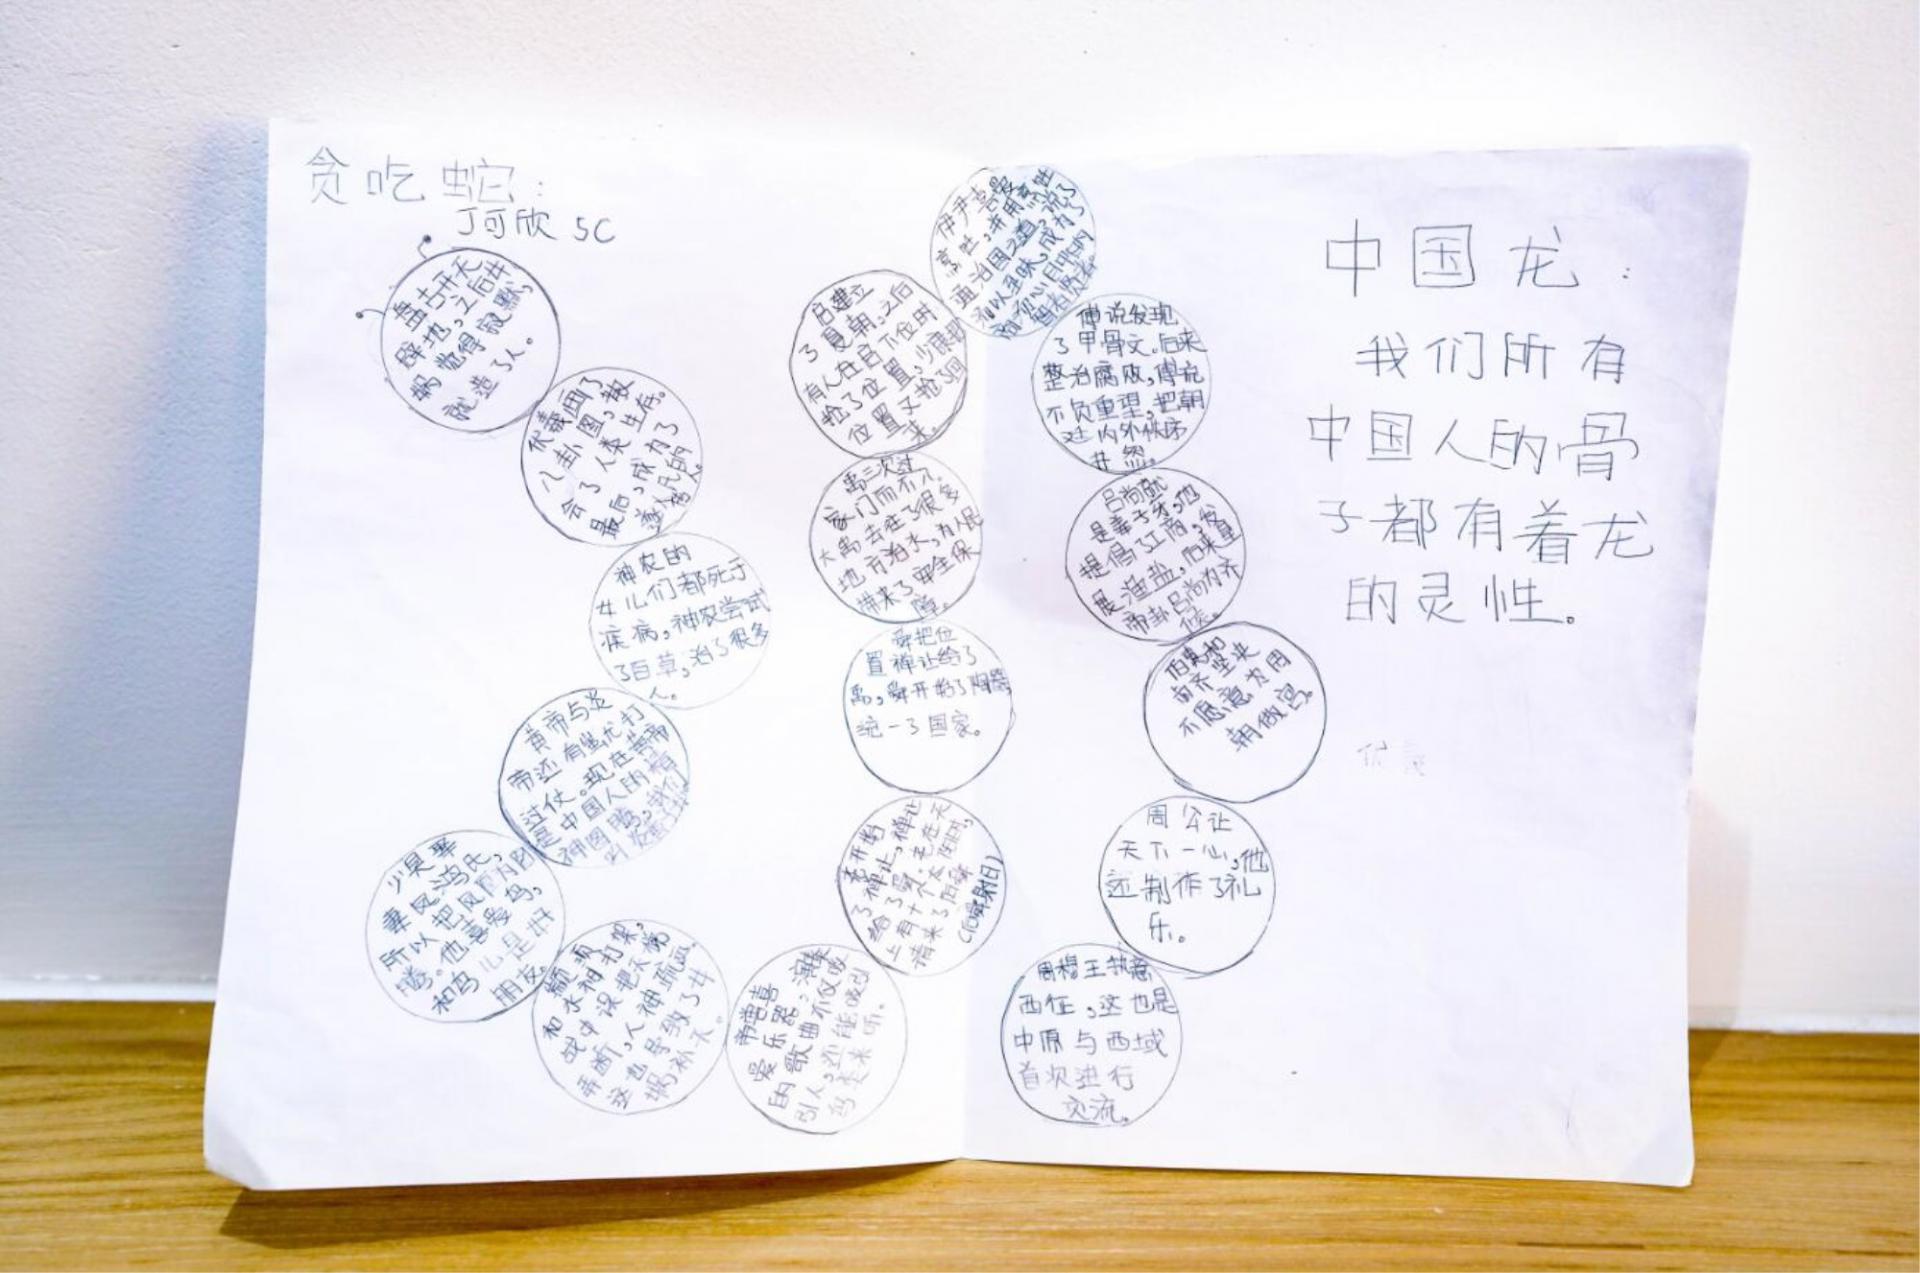 贪吃蛇:
丁可欣 5C
盘古开天
辟地,之后女
娲觉得寂默,
就造了人。
伏羲画了
八卦图,教
会了人类生存。
最后,成为了
神农的
女儿们都死于
疾病,神农尝试
了百草,治了很多
人。
黄帝与炎
帝还有蚩尤打
过仗。现在黄帝
是中国人的精
神图腾,我们
少昊娶
妻凤鸿氏,
所以把凤
腾。他喜爱鸟,
和鸟儿是好
朋友。
颛顼
和水神打架,
战中误把天
弄断,人神疏远。
这也导致了女
娲补天。
帝喾喜
爱乐器,演奏
的歌曲不仅吸
引人,还能吸引
鸟类来听。
尧开始
了禅让,禅让
给了舜。尧在天
上有十个太阳时,
请来了后羿
禹三次过
家门而不入。
大禹去往了很多
地方治水,为人民
带来了
障。
舜把位
置禅让给了
禹,舜开始了陶器
统一了国家。
启建立
了夏朝,之后
有人在启下位时
抢了位置,少康把
位置又抢了回
来。
伊尹喜爱
烹饪,并用烹饪
通治国之道,说了
傅说发现
了甲骨文,后来
整治腐败,傅说
不负重望,把朝
廷内外秩序
井然。
吕尚就
是姜子牙,他
提倡了工商,发
展渔盐,后来皇
帝封吕尚为齐
侯。
不愿意为周
朝做官。
周公让
天下一心,他
还制作了礼
乐。
周穆王执意
西征,这也是
中原与西域
首次进行
交流。
中国龙:
我们所有
中国人的骨
子都有着龙
的灵性。